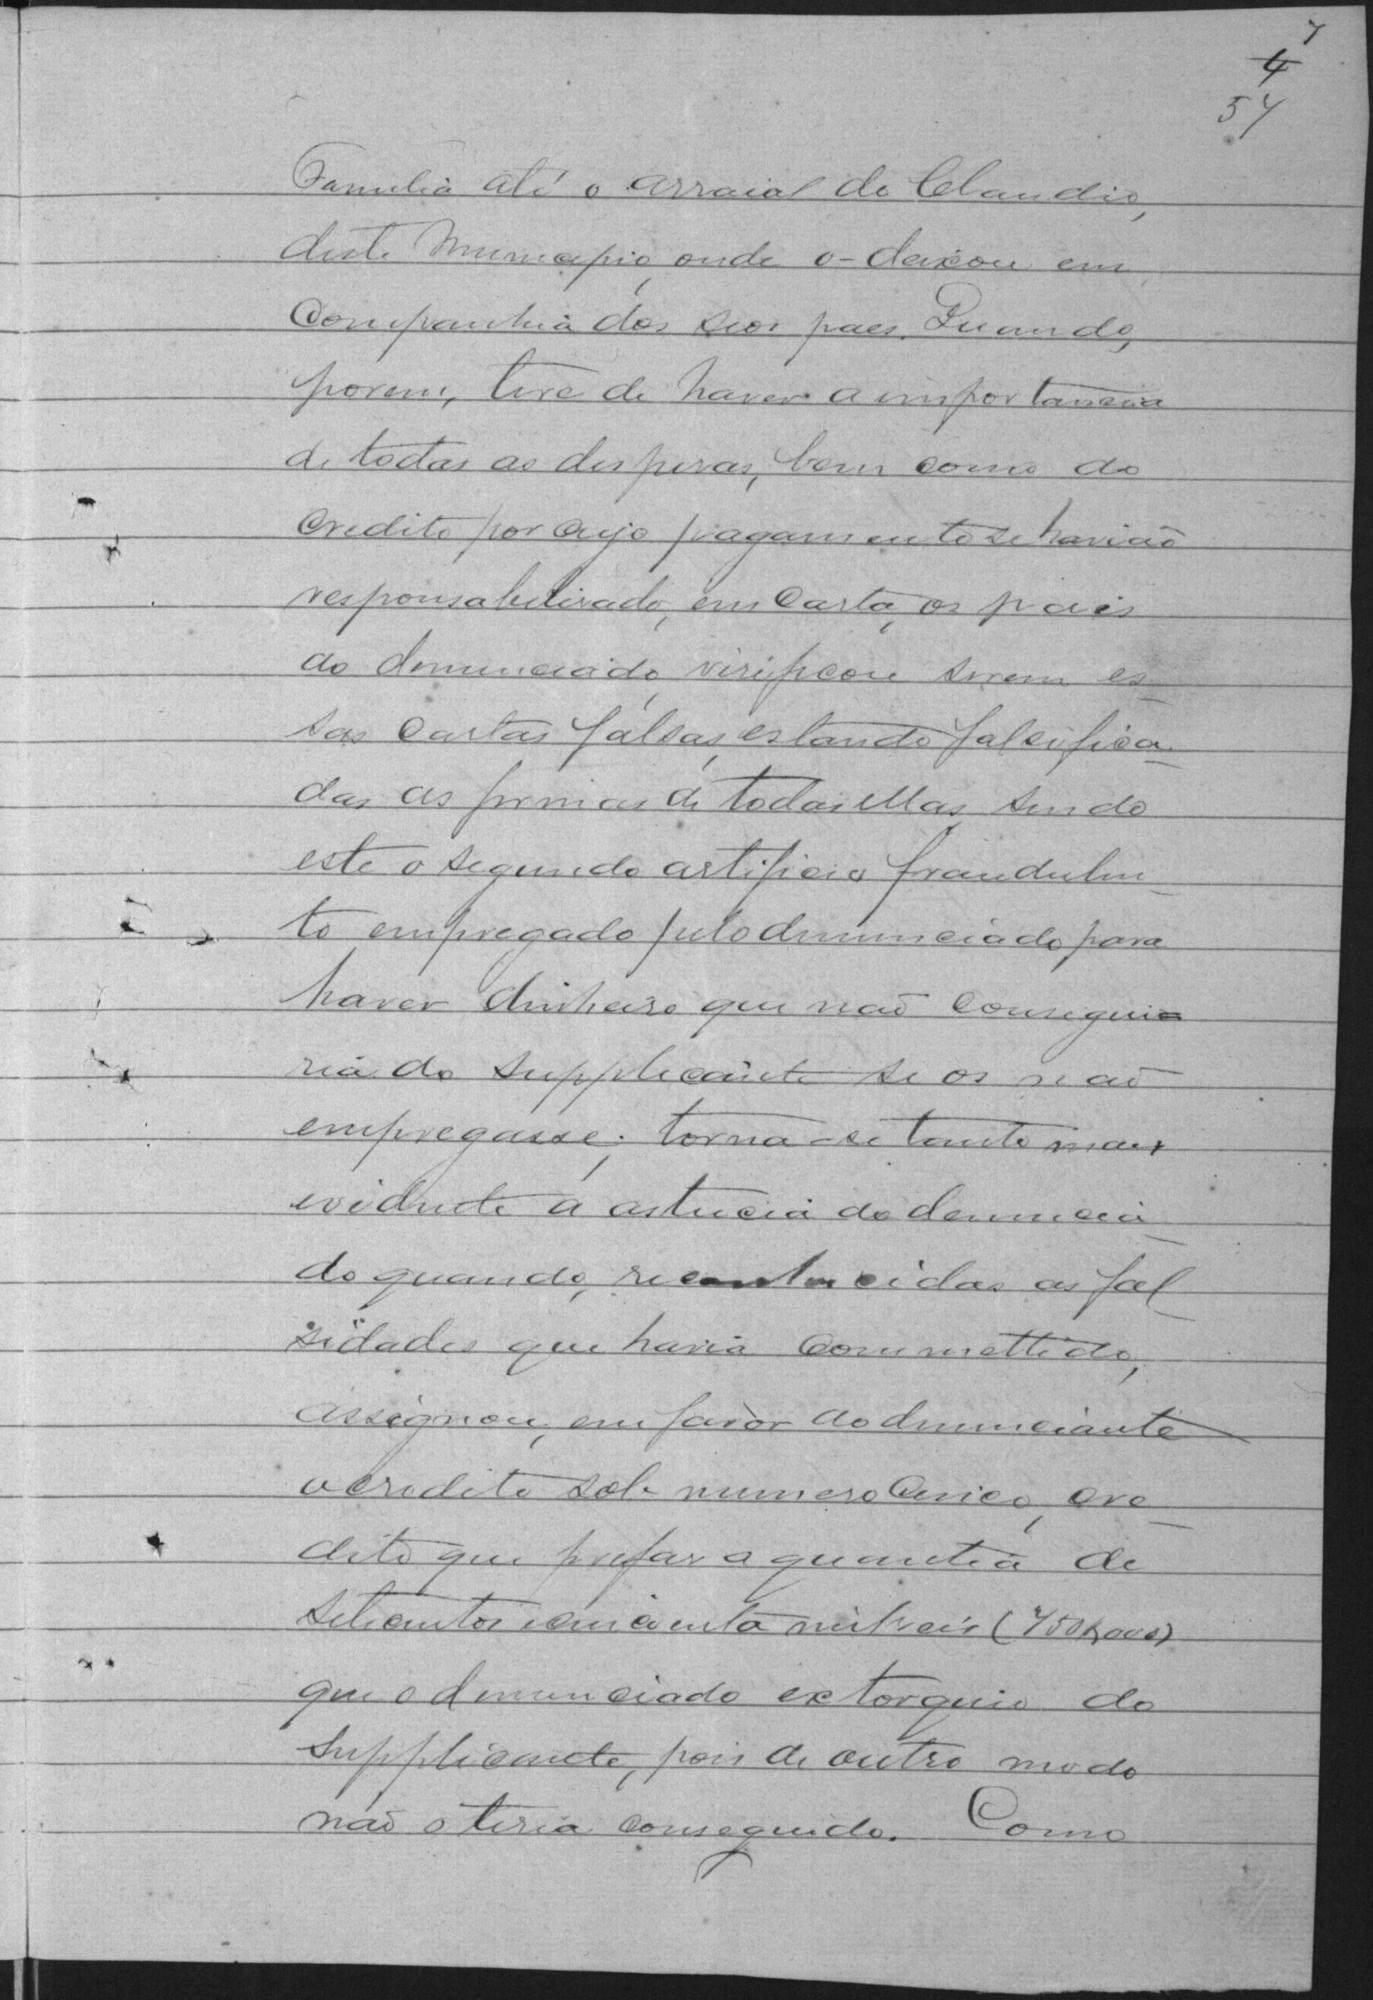 7
4
57
Familia até o arraial do Claudio,
deste Municipio, onde o-deixou em
Companhia dos seos paes. Quando,
porem, teve de haver a importancia
de todas as despezas, bem como do
credito por cujo pagamento se havião
responsabelizado, em carta, os pais
do denunciado, virificou serem es-
sas cartas falsas, estando falcifica-
das as firmas de todas ellas, sendo
este o segundo artificio fraudulen-
to empregado pelo denunciado para
haver dinheiro que não consegui-
ria do Supplicante se os não
empregasse; torna-se tanto mais
evidente a astucia do denuncia-
do quando, reconhecidas as fal-
sidades que havia commettido,
assignou, em favor do denunciante
o credito sob numero Cinco, cre-
dito que prefaz a quantia de
Setecentos e cincoenta mil reis (750$000)
que o denunciado extorquio do
Supplicante, pois de outro modo
não o teria conseguido. Como